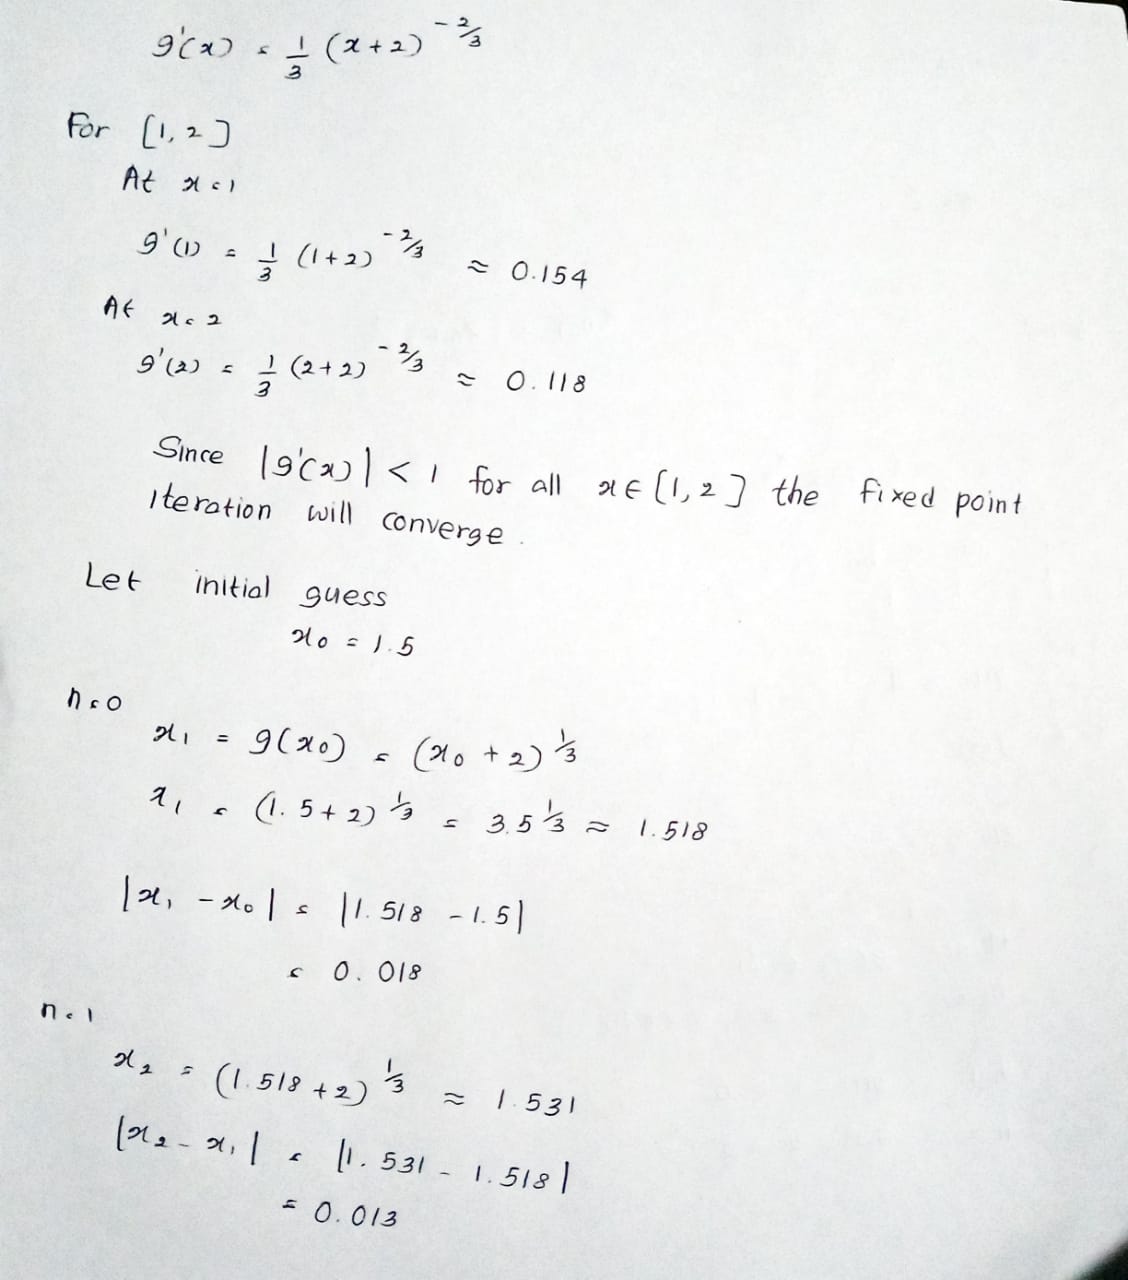 g'(x) = 1/3 (x+2)^-2/3
For [1, 2]
At x=1
g'(1) = 1/3 (1+2)^-2/3 ≈ 0.154
At x=2
g'(2) = 1/3 (2+2)^-2/3 ≈ 0.118
Since |g'(x)| < 1 for all x∈[1,2] the fixed point
iteration will converge.
Let initial guess
x₀ = 1.5
n=0
x₁ = g(x₀) = (x₀ + 2)^1/3
x₁ = (1.5+2)^1/3 = 3.5^1/3 ≈ 1.518
|x₁ - x₀| = |1.518 - 1.5|
= 0.018
n=1
x₂ = (1.518+2)^1/3 ≈ 1.531
|x₂ - x₁| = |1.531 - 1.518|
= 0.013